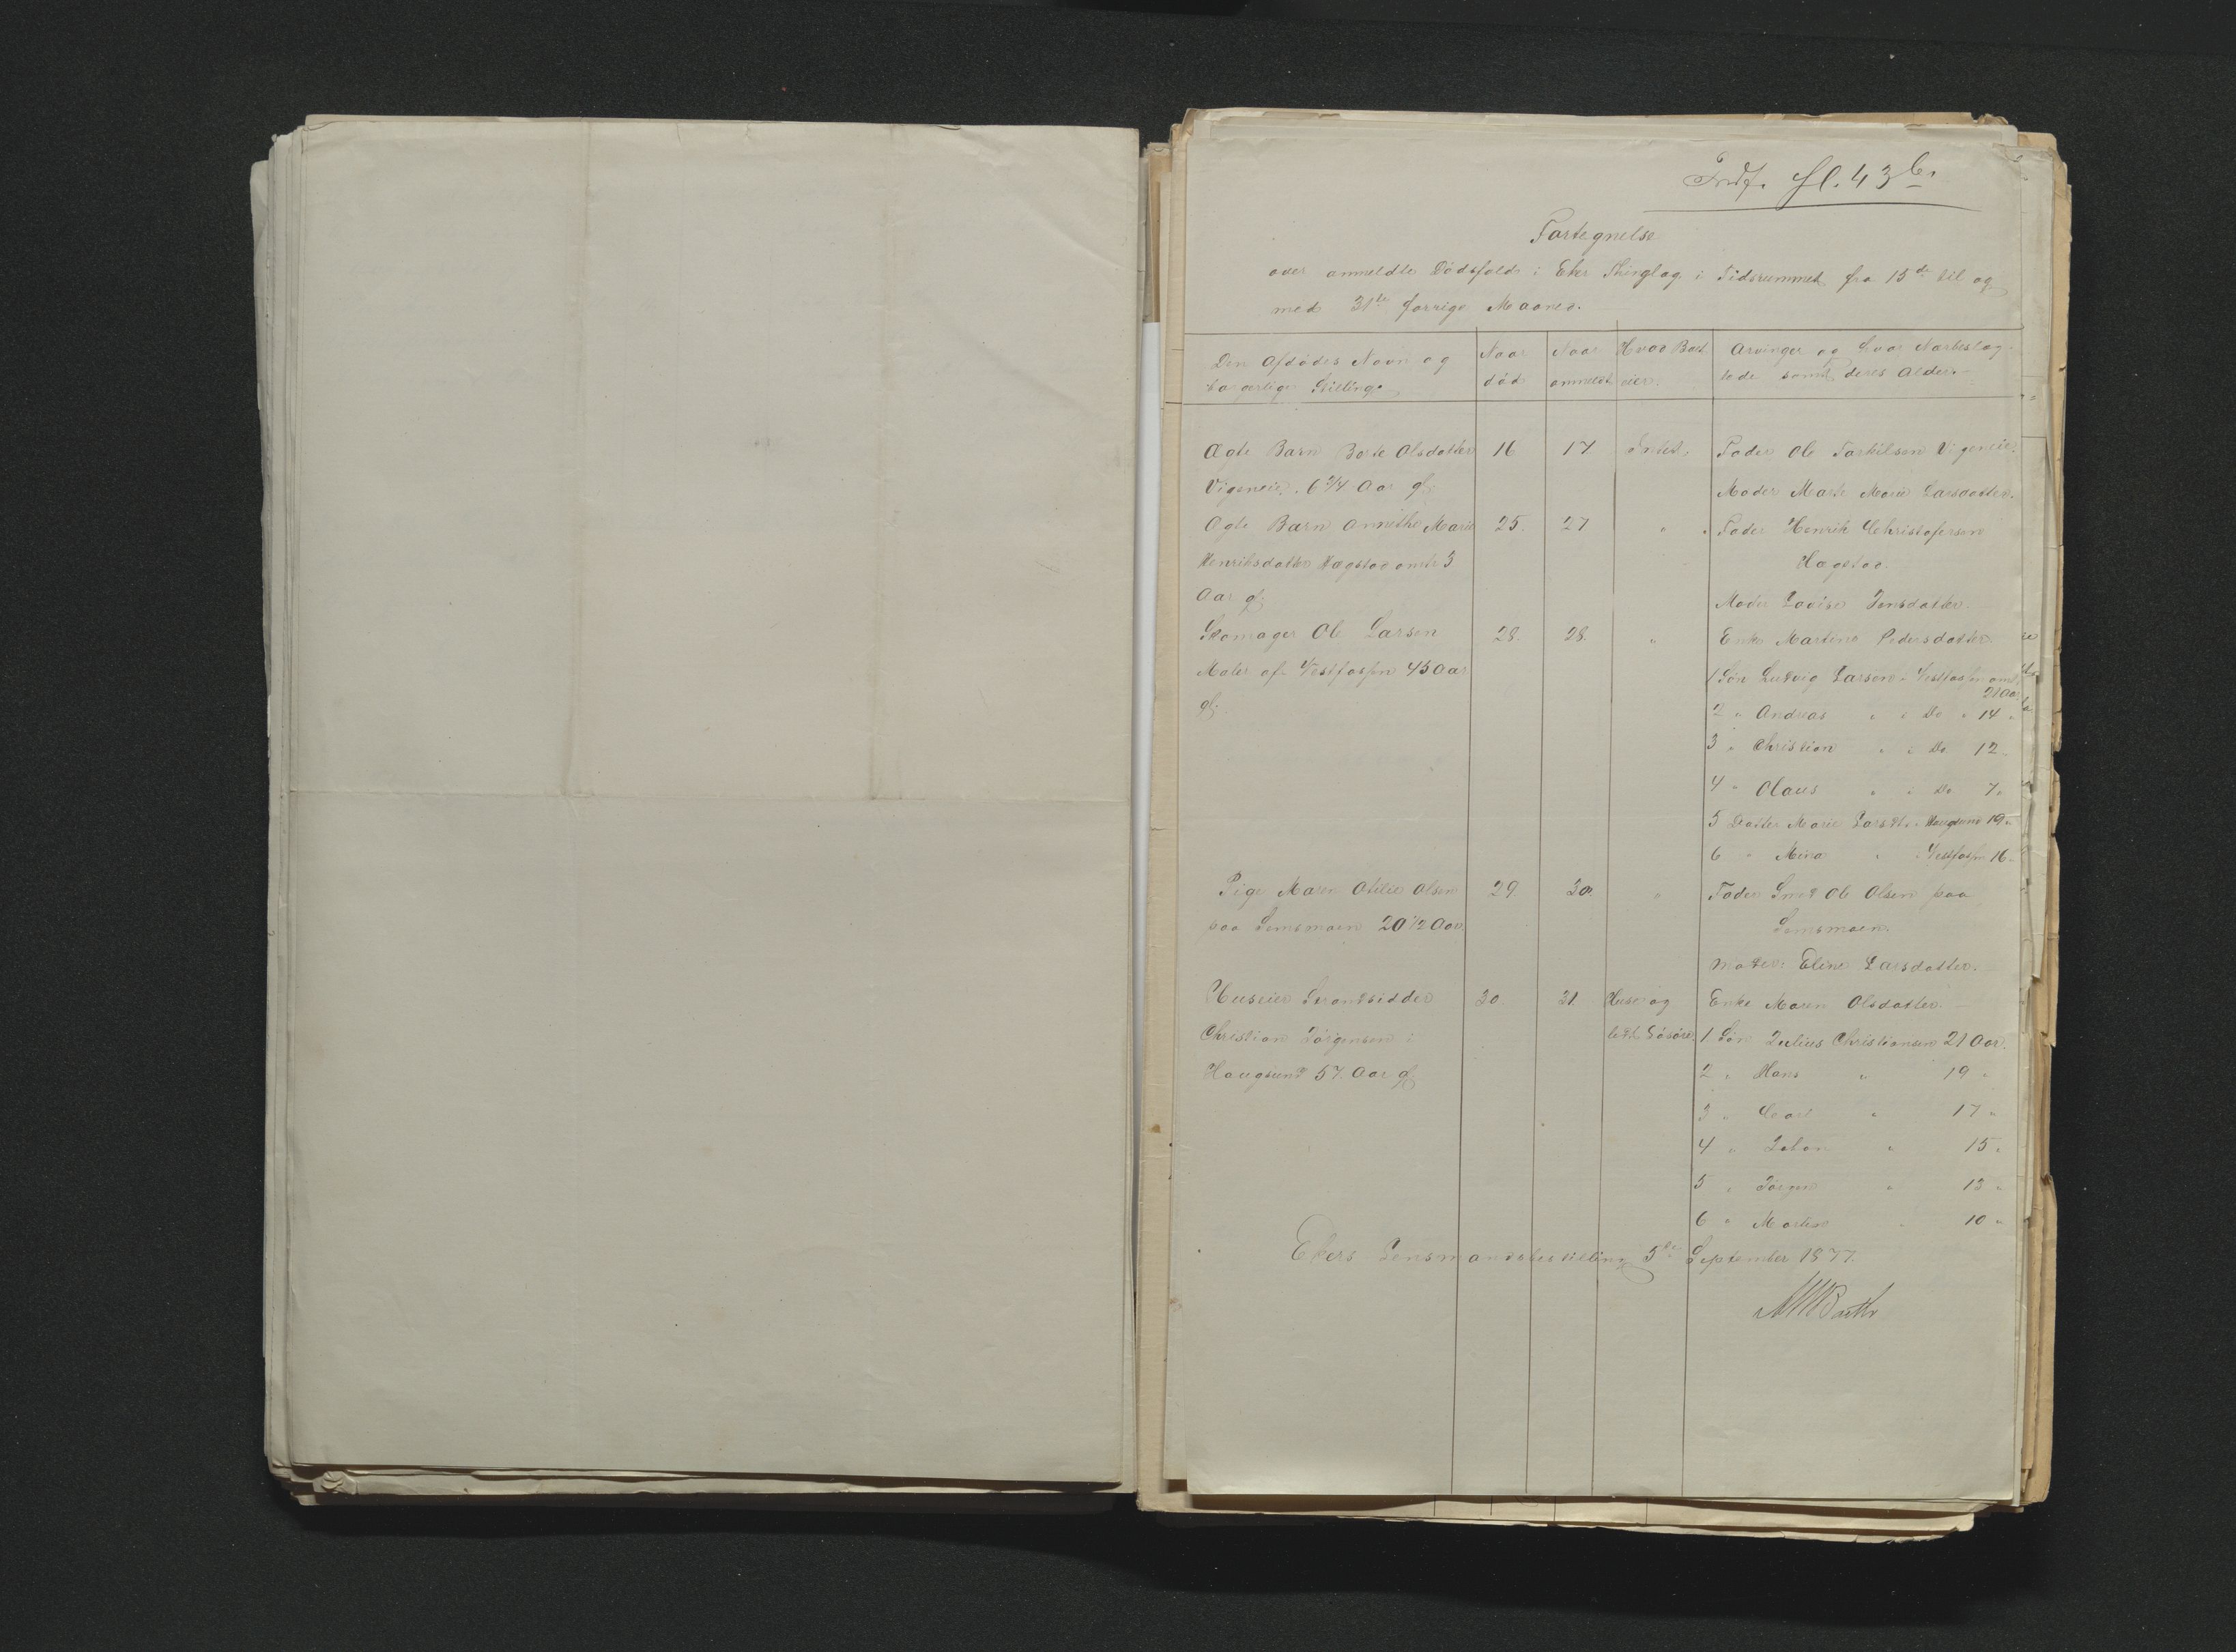 Indf. fl. 43 b.
Fortegnelse
over anmeldte Dødsfald i Eker Thinglag i Tidsrummet fra 15de til og
med 31te forrige Maaned.
Den Afdødes Navn og borgerlige Stilling. | Naar død | Naar anmeldt | Hvad Boet eier. | Arvinger og hvor Nærbeslægtede samt deres Alder.
Ægte Barn Berte Olsdatter 16 17 Intet. Fader Ole Torkilsen Vigeneie.
Vigeneie. 6 3/4 Aar gl. Moder Marte Marie Larsdatter.
Ægte Barn Annethe Marie 25. 27 " Fader Henrik Christofersen
Henriksdatter Hægstad omtr 3 Hægstad.
Aar gl. Moder Lovise Jensdatter.
Skomager Ole Larsen 28. 28. " Enke Martine Pedersdatter.
Maler af Vestfossen 43 Aar 1 Søn Ludvig Larsen i Vestfossen omtr
21 Aar
gl. 2 " Andreas " i Do " 14 "
3 " Christian " i Do 12 "
4 " Olaus " i Do 7 "
5 Datter Marie Larsdt. i Hougsund 19 "
6 " Mina " i Vestfossen 16 "
Pige Maren Otilie Olsen 29 30. " Fader Smed Ole Olsen paa
paa Semsmoen 20 1/2 Aar. Semsmoen.
Moder: Eline Larsdatter.
Huseier Strandsidder 30. 31. Huse og Enke Maren Olsdatter.
Christian Jørgensen i lidt Løsøre. 1 Søn Julius Christiansen 21 Aar.
Hougsund 57 Aar gl. 2 " Hans " 19 "
3 " Carl " 17 "
4 " Johan " 15 "
5 " Jørgen " 13 "
6 " " 10 "
Ekers Lensmandsbestilling 5te September 1877.